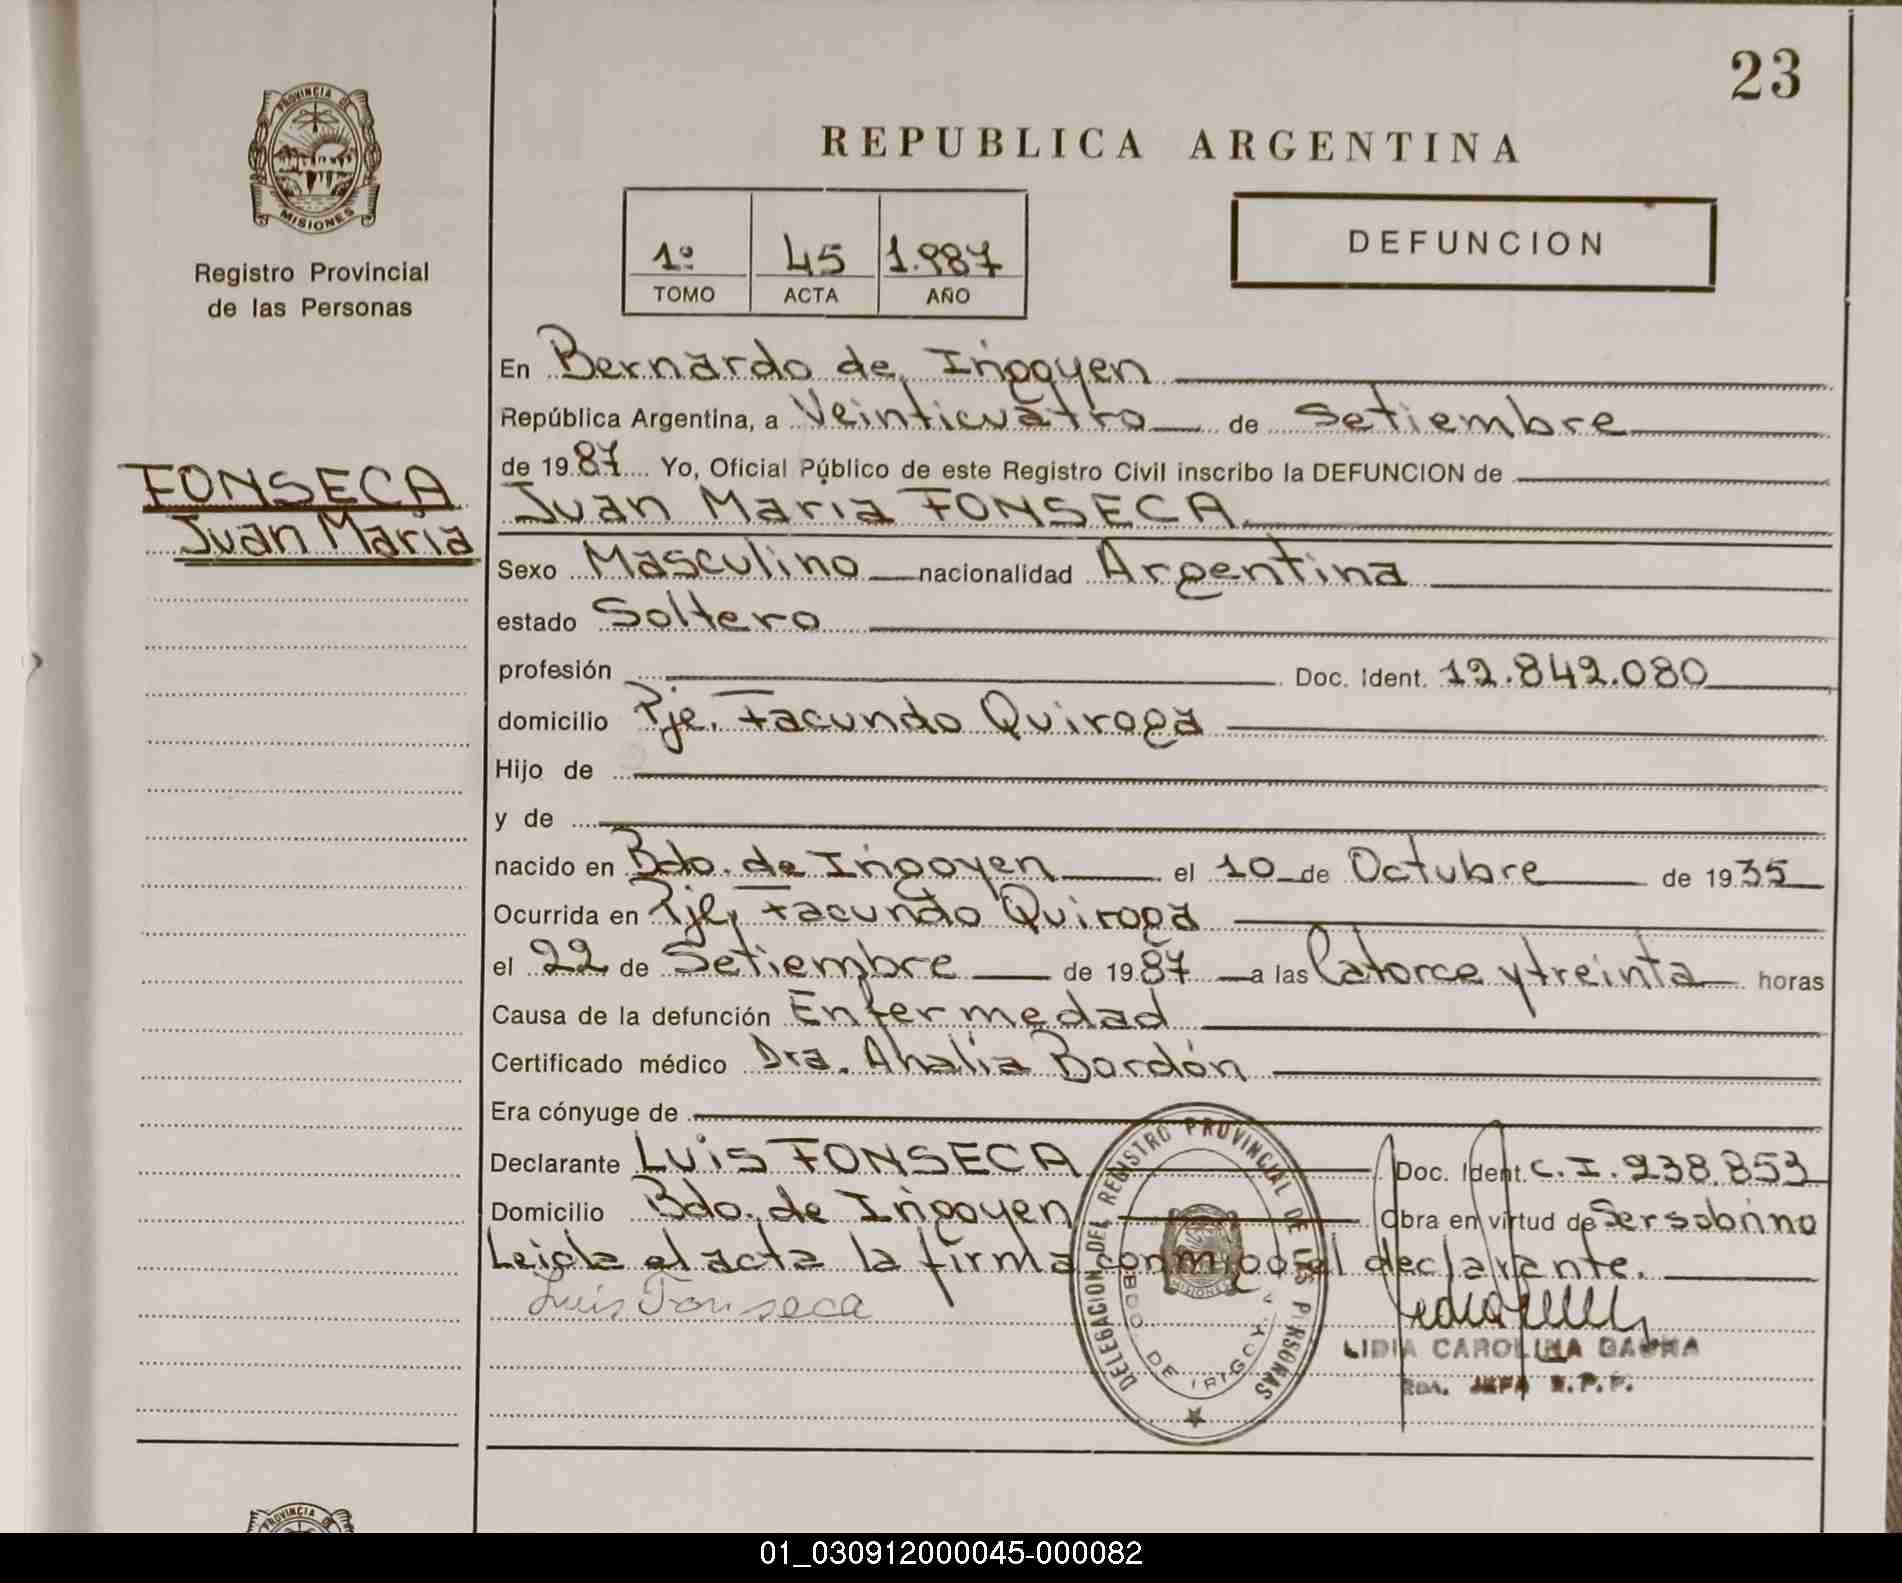 23
PROVINCIA DE
MISIONES
Registro Provincial
de las Personas
REPUBLICA ARGENTINA
1º 45 1.987
TOMO ACTA AÑO
DEFUNCION
FONSECA
Juan Maria
En Bernardo de Irigoyen
República Argentina, a Veinticuatro de Setiembre
de 1987 Yo, Oficial Público de este Registro Civil inscribo la DEFUNCION de
Juan Maria FONSECA
Sexo Masculino nacionalidad Argentina
estado Soltero
profesión Doc. Ident. 12.842.080
domicilio Pje. Facundo Quiroga
Hijo de
y de
nacido en Bdo. de Irigoyen el 10 de Octubre de 1935
Ocurrida en Pje, Facundo Quiroga
el 22 de Setiembre de 1987 a las Catorce y treinta horas
Causa de la defunción Enfermedad
Certificado médico Dra. Ahalía Bordón
Era cónyuge de
Declarante Luis FONSECA Doc. Ident. C.I. 238.853
Domicilio Bdo. de Irigoyen Obra en virtud de Ser sobrino
Leida el acta la firma conmigo el declarante.
Luis Fonseca
DELEGACION DEL REGISTRO PROVINCIAL DE LAS PERSONAS
BDO. DE IRIGOYEN
MISIONES
LIDIA CAROLINA
JEFA R.P.P.
PROVINCIA DE
01_030912000045-000082